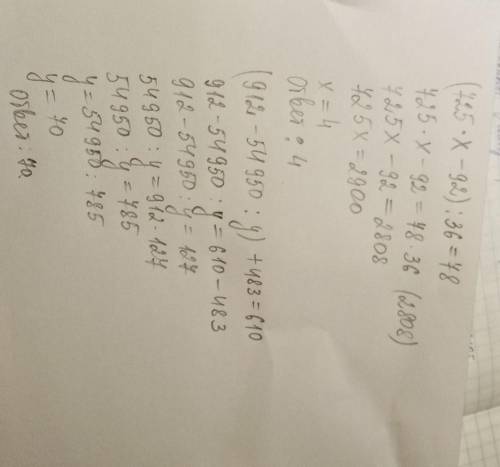 (725 · x - 92) : 36 = 78
725 · x - 92 = 78 · 36 (2808)
725x - 92 = 2808
725x = 2900
x = 4
Ответ : 4
(912 - 54950 : y) + 483 = 610
912 - 54950 : y = 610 - 483
912 - 54950 : y = 127
54950 : y = 912 - 127
54950 : y = 785
y = 54950 : 785
y = 70
Ответ : 70.